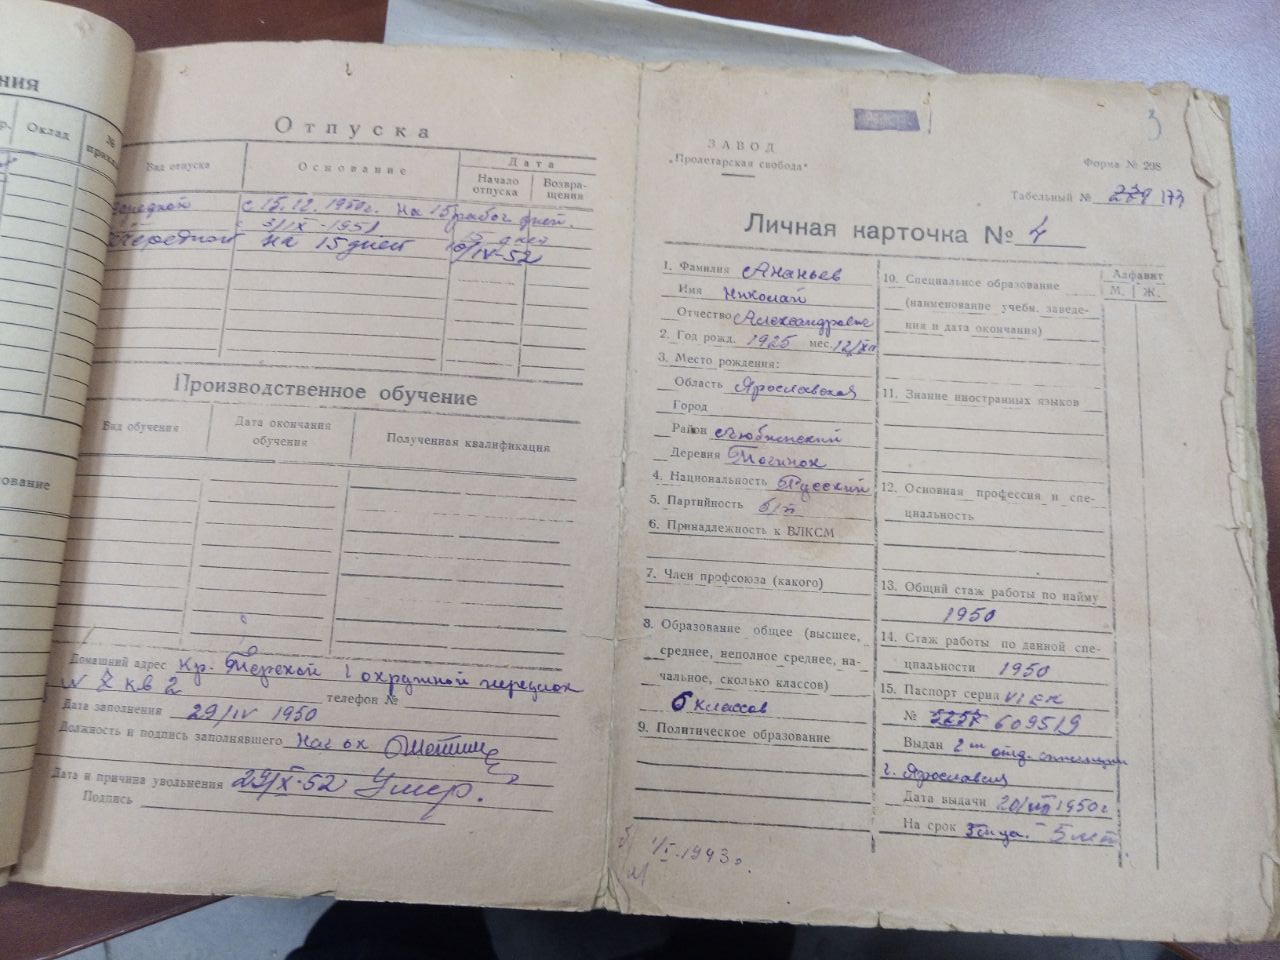 ния
Оклад
№
ование
Отпуска
Вид отпуска
Основание
Дата
Начало отпуска
Возвра-щения
с 15.12.1950г. на 15 рабоч дней.
3/IX-1951
Очередной на 15 дней
IV-52
Производственное обучение
Вид обучения
Дата окончания обучения
Полученная квалификация
Домашний адрес Кр. 1 окружной
кв 2 телефон №
Дата заполнения 29/IV 1950
Должность и подпись заполнявшего Нач ок
Дата и причина увольнения 29/X-52 Умер.
Подпись
3
ЗАВОД
„Пролетарская свобода"
Форма № 298
Табельный № 173
Личная карточка № 4
1. Фамилия Ананьев
Имя Николай
Отчество Александрович
2. Год рожд. 1925 мес. 12/XII
3. Место рождения:
Область Ярославская
Город
Район Любимский
Деревня Починок
4. Национальность Русский
5. Партийность б/п
6. Принадлежность к ВЛКСМ
7. Член профсоюза (какого)
8. Образование общее (высшее,
среднее, неполное среднее, на-
чальное, сколько классов)
6 классов
9. Политическое образование
1/I-1943 г.
10. Специальное образование
(наименование учебн. заведе-
ния и дата окончания)
11. Знание иностранных языков
12. Основная профессия и спе-
циальность
13. Общий стаж работы по найму
1950
14. Стаж работы по данной спе-
циальности 1950
15. Паспорт серии
№ 609519
Выдан 2 отд. милиции
г. Ярославля
Дата выдачи 1950г.
На срок 5 лет.
Алфавит
М. Ж.